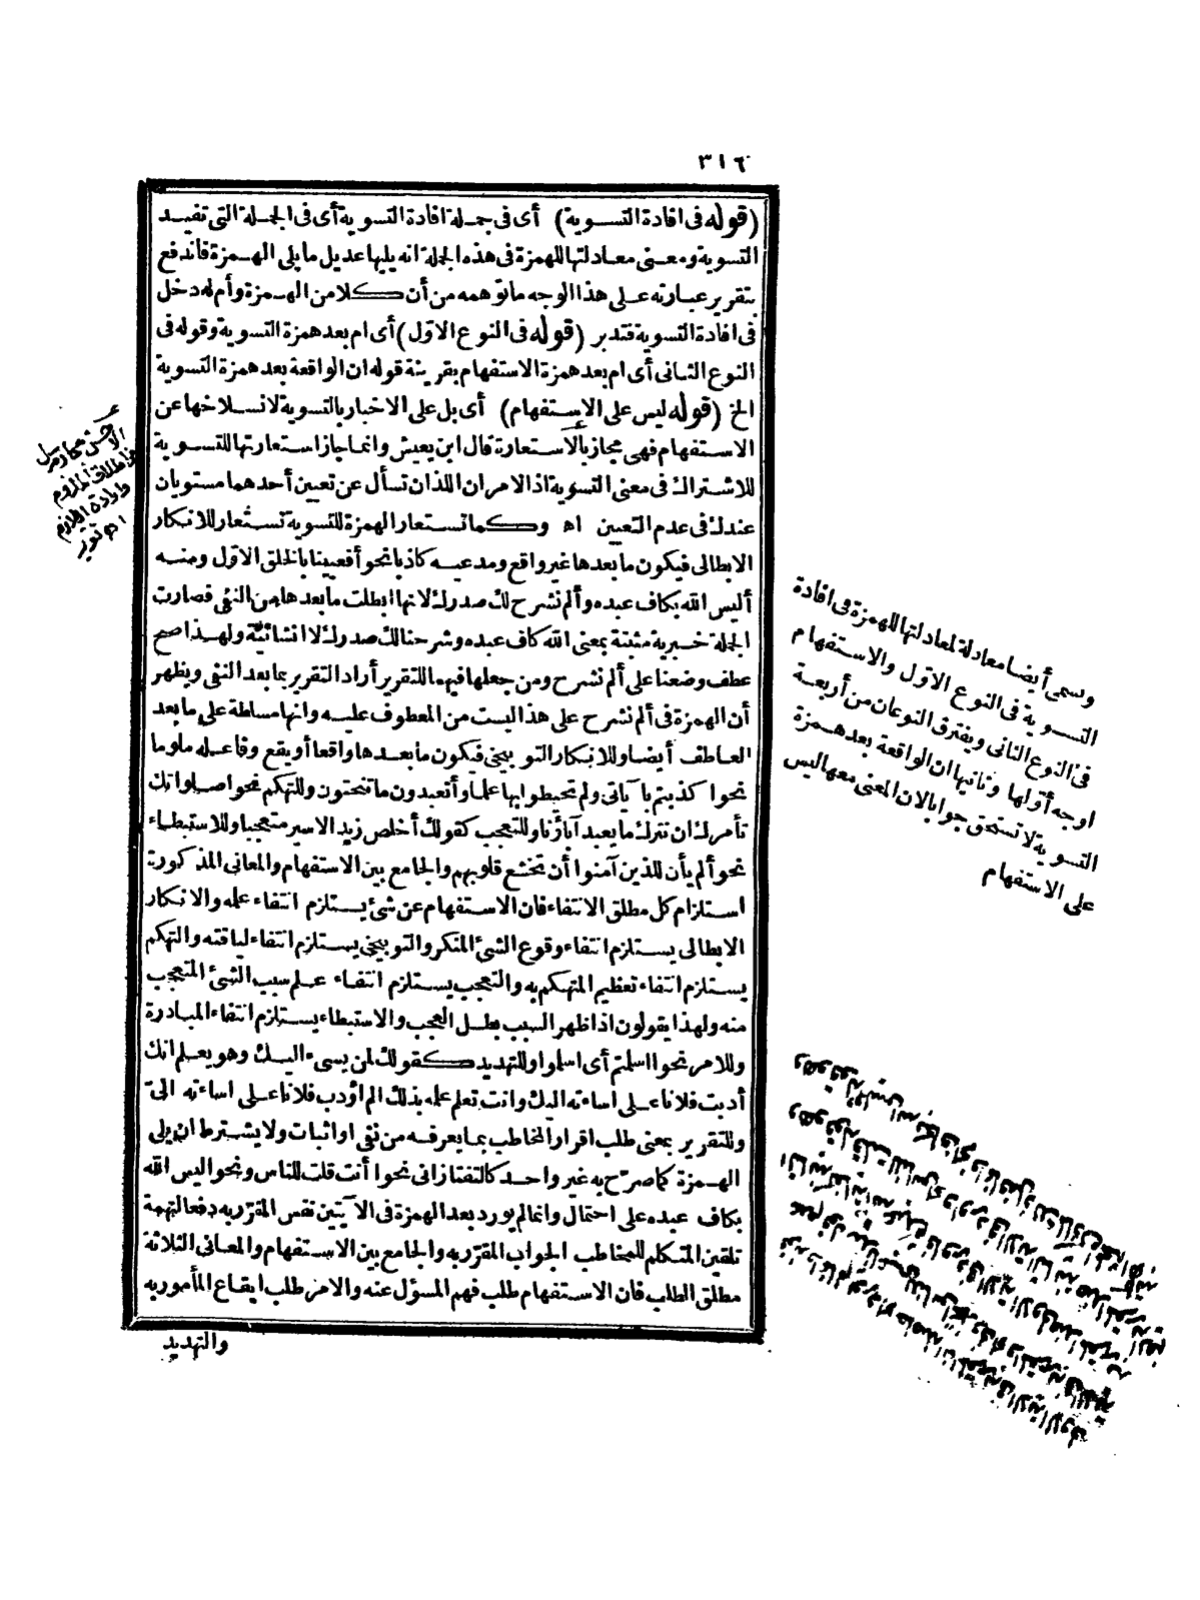 ٣١٦
(قوله فى افادة التسوية) أى فى جملة افادة التسوية أى فى الجملة التى تفيد
التسوية ومعنى معادلتها للهمزة فى هذه الجملة انه يليها عديل ما يلى الهمزة فاندفع
بتقرير عبارته على هذا الوجه ما توهمه من أن كلا من الهمزة وأم له دخل
فى افادة التسوية فتدبر (قوله فى النوع الاول) أى ام بعد همزة التسوية وقوله فى
النوع الثانى أى ام بعد همزة الاستفهام بقرينة قوله ان الواقعة بعد همزة التسوية
الخ (قوله ليس على الاستفهام) أى بل على الاخبار بالتسوية لانسلاخها عن
الاستفهام فهى مجاز بالاستعارة قال ابن يعيش وانما جاز استعارتها للتسوية
للاشتراك فى معنى التسوية اذ الامران اللذان تسأل عن تعيين أحدهما مستويان
عندك فى عدم التعيين اه وكما تستعار الهمزة للتسوية تستعار للانكار
الابطالى فيكون ما بعدها غير واقع ومدعيه كاذبا نحو أفعيينا بالخلق الاول ومنه
أليس الله بكاف عبده وألم نشرح لك صدرك لانها ابطلت ما بعدها من النفى فصارت
الجملة خبرية مثبتة بمعنى الله كاف عبده وشرحنا لك صدرك لا انشائية ولهذا صح
عطف وضعنا على ألم نشرح ومن جعلها فيهما للتقرير أراد التقرير بما بعد النفى ويظهر
أن الهمزة فى ألم نشرح على هذا ليست من المعطوف عليه وانها مسلطة على ما بعد
العاطف أيضا وللانكار التوبيخى فيكون ما بعدها واقعا أو يقع وفاعله ملوما
نحو أكذبتم بآياتى ولم تحيطوا بها علما وأتعبدون ما تنحتون وللتهكم نحو أصلواتك
تأمرك ان نترك ما يعبد آباؤنا وللتعجب كقولك أخلص زيد الاسير متعجبا وللاستبطاء
نحو ألم يأن للذين آمنوا أن تخشع قلوبهم والجامع بين الاستفهام والمعانى المذكورة
استلزام كل مطلق الانتفاء فان الاستفهام عن شئ يستلزم انتفاء علمه والانكار
الابطالى يستلزم انتفاء وقوع الشئ المنكر والتوبيخى يستلزم انتفاء لياقته والتهكم
يستلزم انتفاء تعظيم المتهكم به والتعجب يستلزم انتفاء علم سبب الشئ المتعجب
منه ولهذا يقولون اذا ظهر السبب بطل العجب والاستبطاء يستلزم انتفاء المبادرة
وللامر نحو أأسلمتم أى اسلموا وللتهديد كقولك لمن يسىء اليك وهو يعلم انك
أدبت فلانا على اساءته اليك وانت تعلم علمه بذلك الم أؤدب فلانا على اساءته الىّ
وللتقرير بمعنى طلب اقرار المخاطب بما يعرفه من نفى او اثبات ولا يشترط ان يلى
الهمزة كما صرّح به غير واحد كالتفتازانى نحو أأنت قلت للناس ونحو اليس الله
بكاف عبده على احتمال وانما لم يورد بعد الهمزة فى الآيتين نفس المقرّ به دفعا لتهمة
تلقين المتكلم للمخاطب الجواب المقرّ به والجامع بين الاستفهام والمعانى الثلاثة
مطلق الطلب فان الاستفهام طلب فهم المسؤل عنه والامر طلب ايقاع المأمور به
والتهديد
وتسمى أيضا معادلة لمعادلتها للهمزة فى افادة
التسوية فى النوع الاول والاستفهام
فى النوع الثانى ويفترق النوعان من أربعة
اوجه أوّلها وثانيها ان الواقعة بعد همزة
التسوية لا تستحق جوابا لان المعنى معها ليس
على الاستفهام